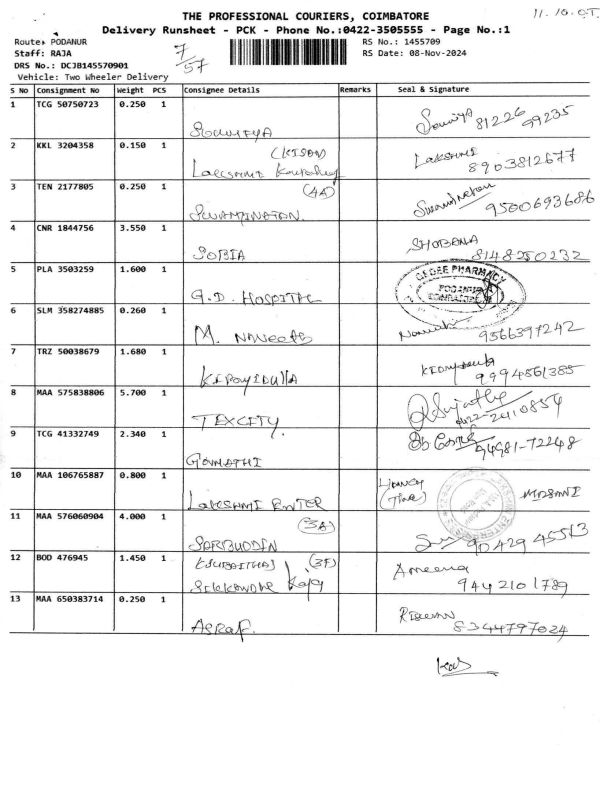 THE PROFESSIONAL COURIERS, COIMBATORE
11.10.
Delivery Runsheet - PCK - Phone No.:0422-3505555 - Page No.:1
Route: PODANUR
RS No.: 1455709
Staff: RAJA
7/57
RS Date: 08-Nov-2024
DRS No.: DCJB145570901
Vehicle: Two Wheeler Delivery
S No Consignment No Weight PCS Consignee Details Remarks Seal & Signature
1 TCG 50750723 0.250 1 Sowmiya 81226 99235
2 KKL 3204358 0.150 1 LAKSHMI 8903812677
3 TEN 2177805 0.250 1 (4A) SWAMINATHAN. Swaminathan 9500693686
4 CNR 1844756 3.550 1 SOBIA SHOBANA 8148250232
5 PLA 3503259 1.600 1 G.D. HOSPITAL GEDEE PHARMACY PODANUR COIMBATORE
6 SLM 358274885 0.260 1 M. 9566397242
7 TRZ 50038679 1.680 1 9994561385
8 MAA 575838806 5.700 1 TEXCITY. Sujatha 0422-2410854
9 TCG 41332749 2.340 1 GOMATHI 94981-72248
10 MAA 106765887 0.800 1 LAKSHMI ENTER
11 MAA 576060904 4.000 1 (3A) 90429 45513
12 BOD 476945 1.450 1 (3F) Ameena 9442101789
13 MAA 650383714 0.250 1 ASRAF. 8344797024